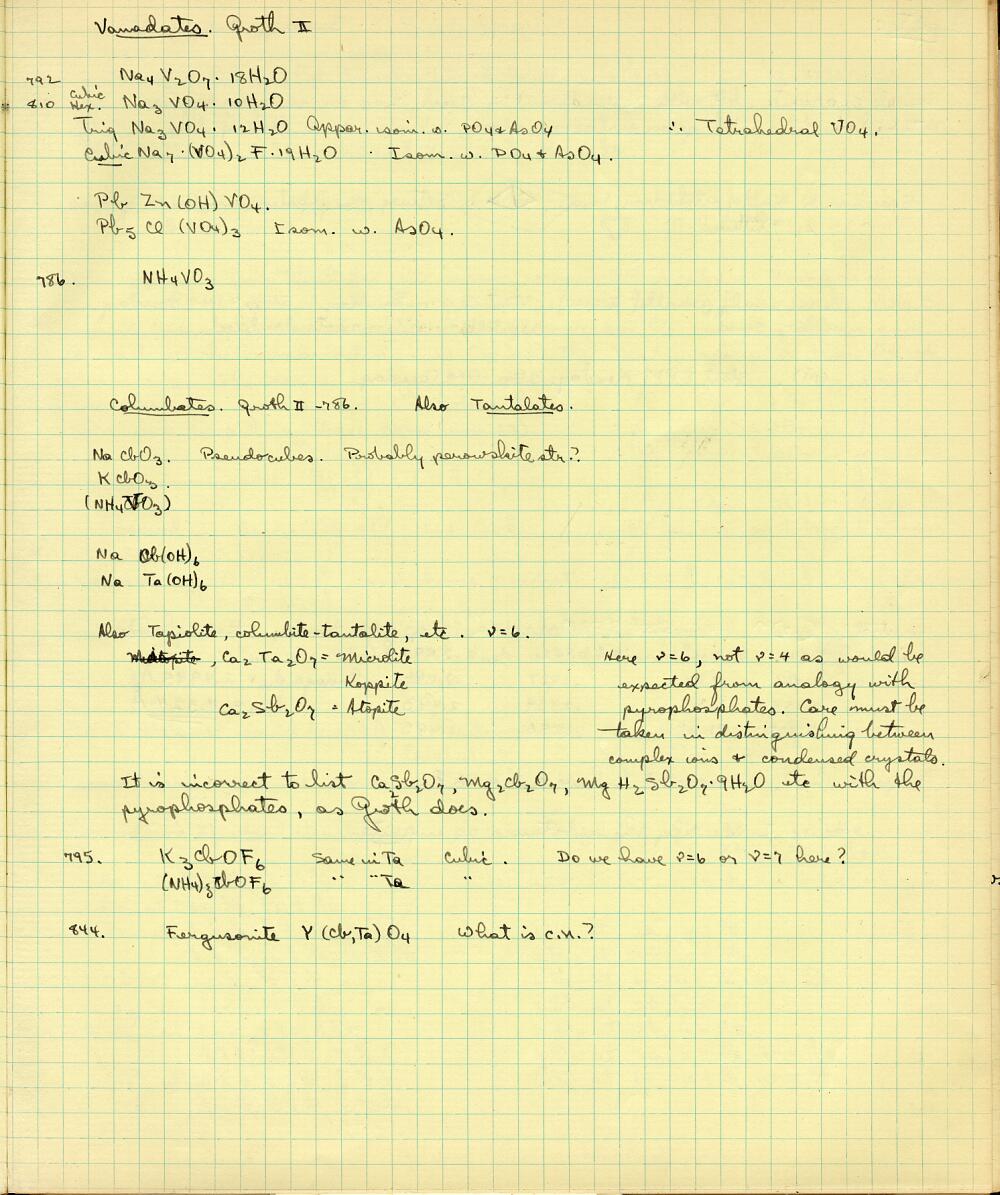 Vanadates. Groth II
792 Na4 V2O7 · 18H2O
810 Cubic Hex. Na3 VO4 · 10H2O
Trig Na3 VO4 · 12H2O Appar. isom. w. PO4 & AsO4 ∴ Tetrahedral VO4.
Cubic Na7 · (VO4)2 F · 19H2O · Isom. w. PO4 & AsO4.
Pb Zn (OH) VO4.
Pb5 Cl (VO4)3 Isom. w. AsO4.
786. NH4VO3
Columbates. Groth II -786. Also Tantalates.
Na CbO3. Pseudocubes. Probably perowskite str.?
K CbO3.
(NH4VO3)
Na Cb(OH)6
Na Ta(OH)6
Also Tapiolite, columbite-tantalite, etc. ν=6.
, Ca2 Ta2O7 = Microlite
Koppite
Ca2 Sb2O7 = Atopite
Here ν=6, not ν=4 as would be
expected from analogy with
pyrophosphates. Care must be
taken in distinguishing between
complex ions & condensed crystals.
It is incorrect to list Ca2Sb2O7, Mg2Cb2O7, Mg H2 Sb2O7·9H2O etc with the
pyrophosphates, as Groth does.
795. K3CbOF6 Same in Ta Cubic. Do we have ν=6 or ν=7 here?
(NH4)3CbOF6 " " Ta "
844. Fergusonite Y (Cb,Ta) O4 What is c.n.?